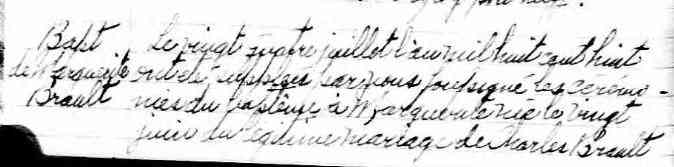 Bapt Le vingt quatre juillet l'an mil huit cent huit
de Marguerite ont été supplées par nous soussigné les cérémo-
Brault nies du baptême à Marguerite née le vingt
juin du légitime mariage de Charles Brault